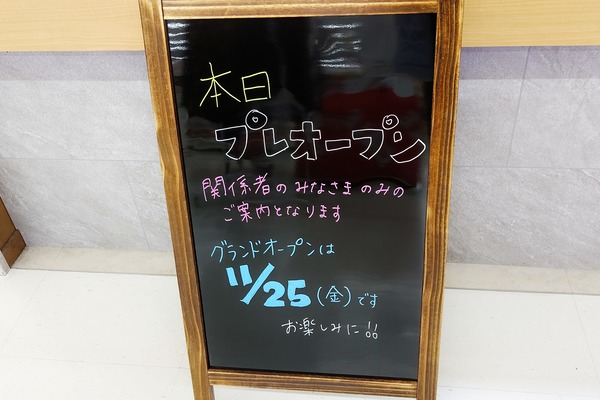 本日
プレオープン
関係者のみなさまのみの
ご案内となります
グランドオープンは
11/25(金)です
お楽しみに!!